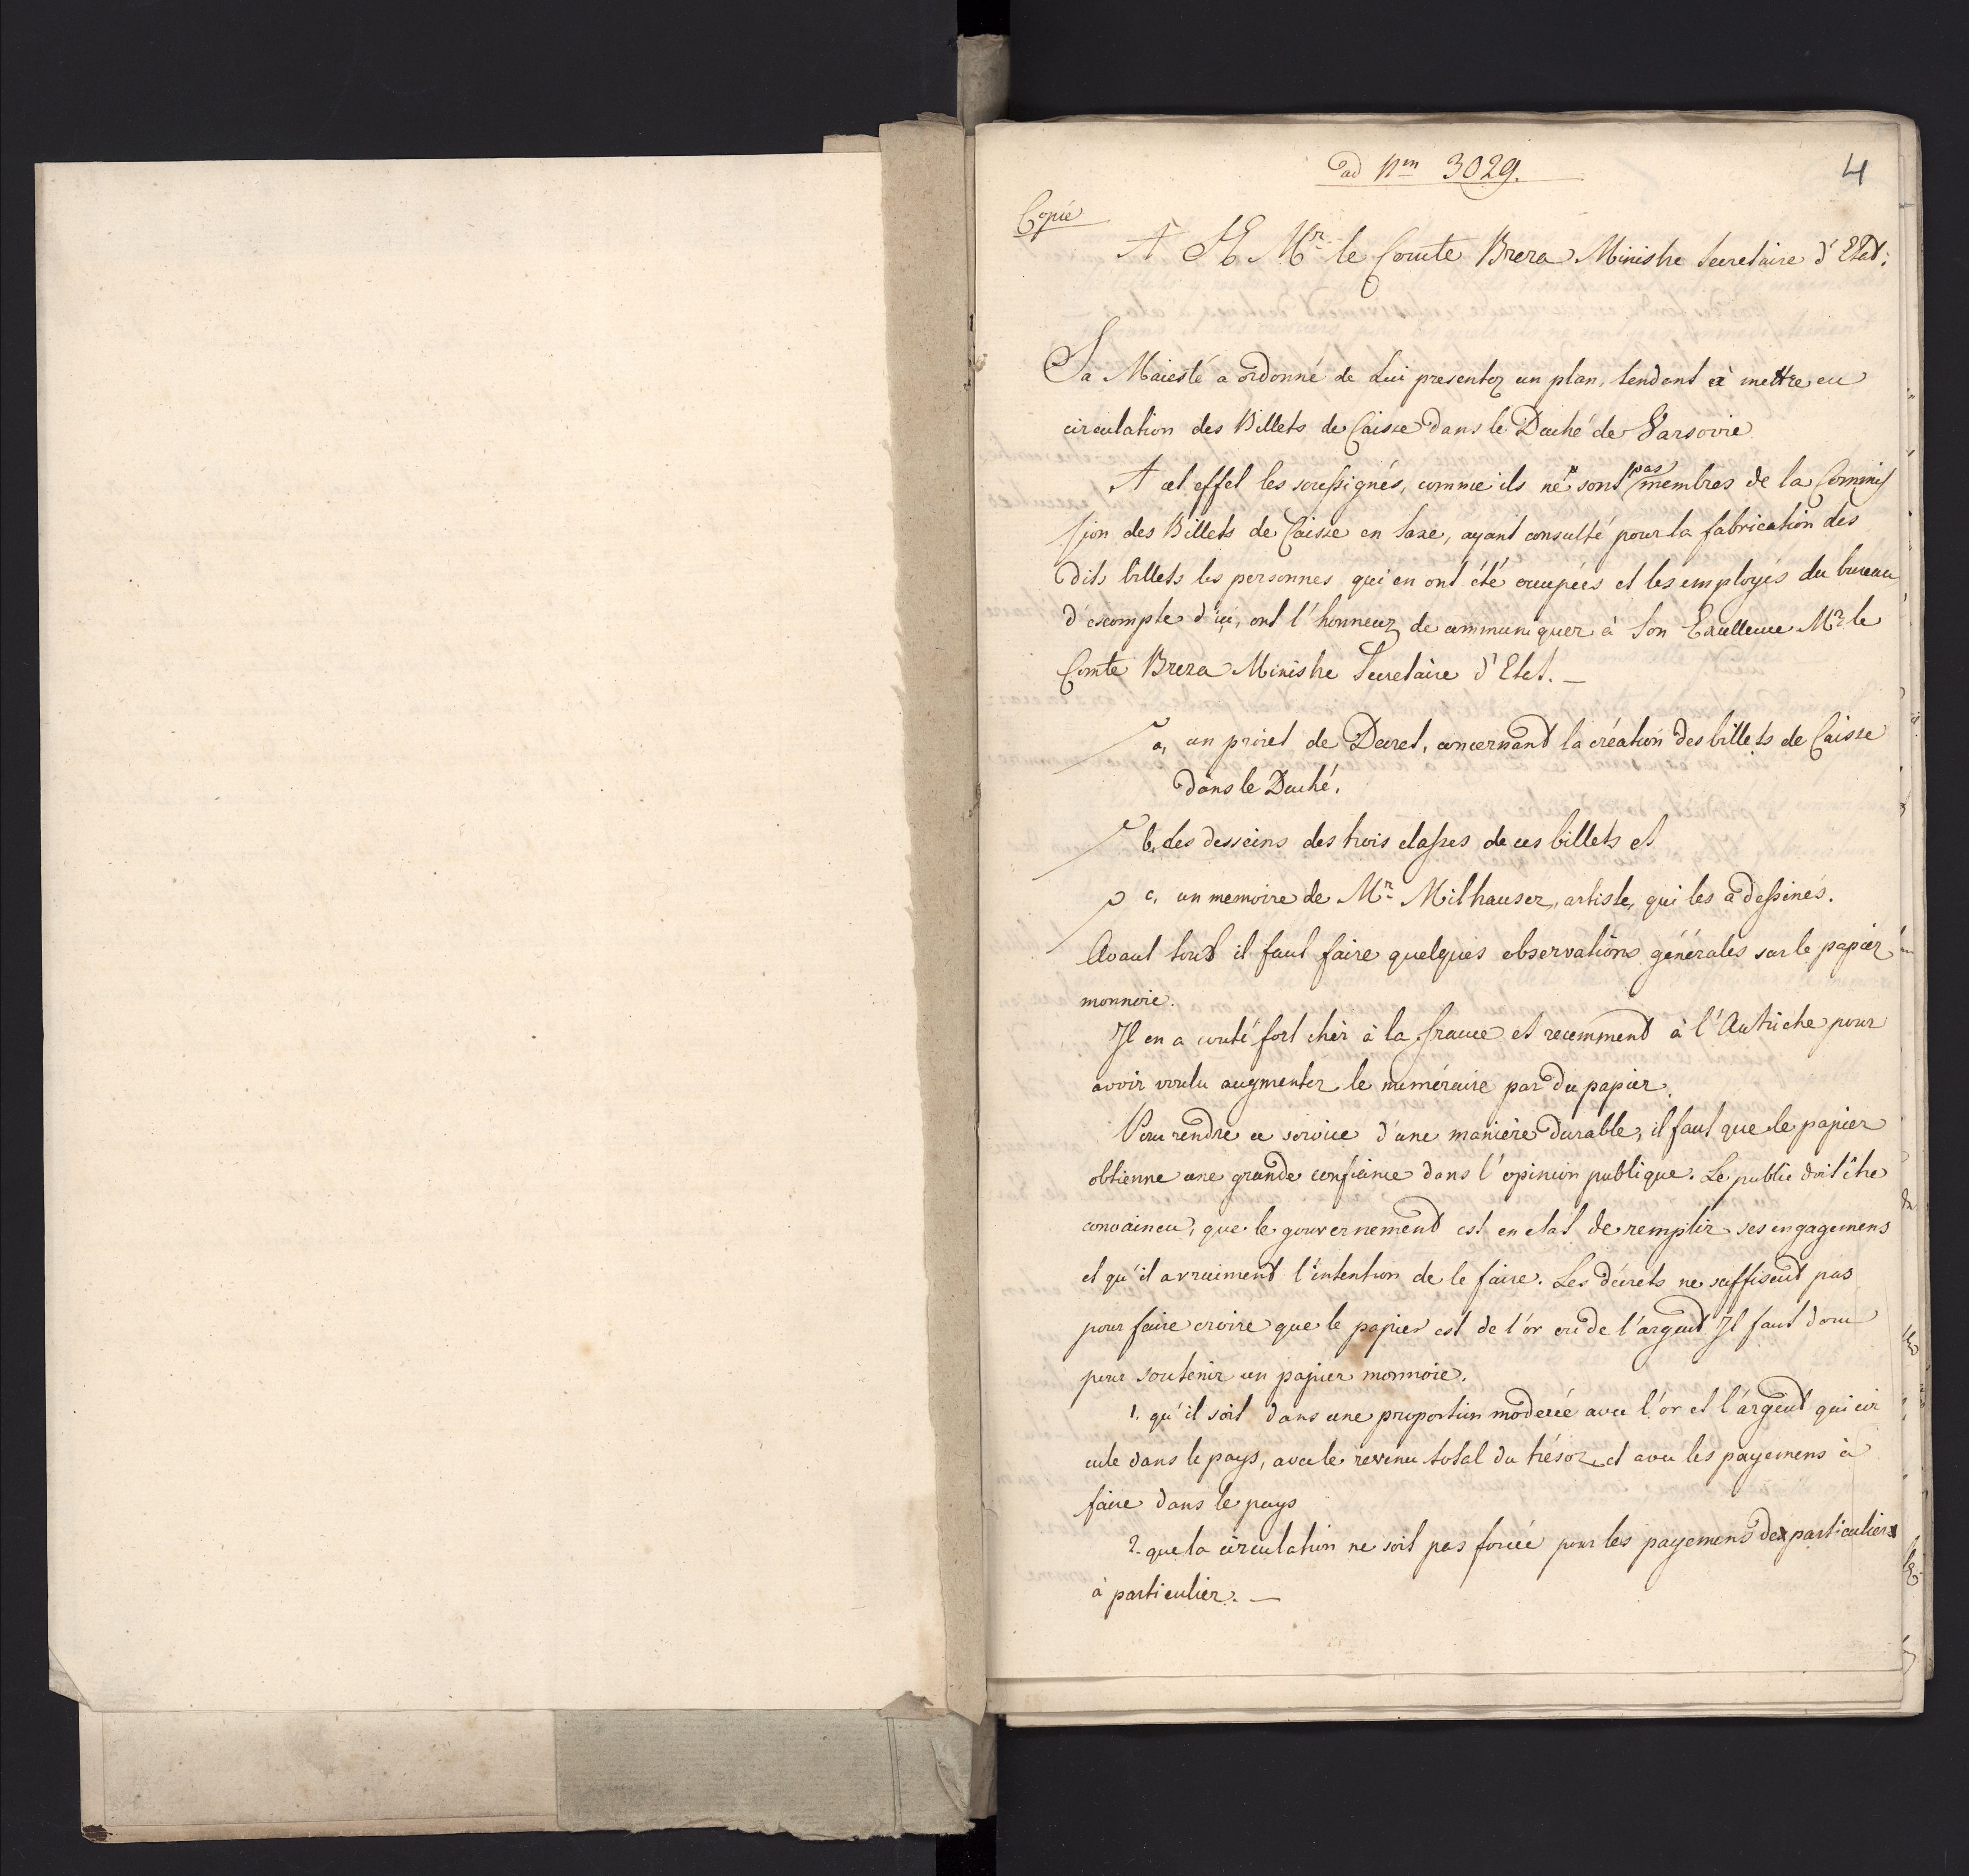 ad Nm 3029.
4
Copie
A S E Mr le Comte Breza Ministre Secretaire d'Etat.
Sa Maiesté a ordonné de Lui presenter un plan, tendent à mettre en
circulation des Billets de Caisse dans le Duché de Varsovie
A cet effet les soussignés, comme ils ne sont pas membres de la Commis
sion des Billets de Caisse en Saxe, ayant consulté pour la fabrication des
dits billets les personnes, qui en ont été occupées et les employés du bureau
d'escompte d'ici, ont l'honneur de communiquer à Son Excellence Mr le
Comte Breza Ministre Secretaire d'Etat. —
a, un proiet de Decret, concernant la création des billets de Caisse
dans le Duché.
b, des desseins des trois classes de ces billets et
c, un memoire de Mr Milhauser, artiste, qui les a dessinés.
Avant tout il faut faire quelques observations générales sur le papier
monnoie.
Il en a couté fort chèr à la france et recemment à l'Autriche pour
avoir voulu augmenter le numéraire par du papier.
Pour rendre ce service d'une manière durable, il faut que le papier
obtienne une grande confiance dans l'opinion publique. Le public doit être
convaincu, que le gouvernement est en etat de remplir ses engagemens
et qu'il a vraiment l'intention de le faire. Les décrets ne suffisent pas
pour faire croire que le papier est de l'or ou de l'argent Il faut donc
pour soutenir un papier monnoie.
1. qu'il soit dans une proportion moderée avec l'or et l'argent qui cir
cule dans le pays, avec le revenu total du trésor, et avec les payemens à
faire dans le pays
2. que la circulation ne soit pas forcée pour les payemens de particulier
à particulier. —